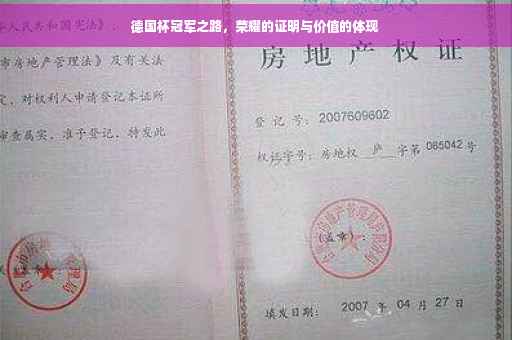 德国杯冠军之路，荣耀的证明与价值的体现
人民共和国宪法》、
市房地产管理法》及有关法
定，对权利人申请登记本证所
审查属实，准予登记，特发此
房地产权证
登记号：2007609602
权证字号：房地权 庐 字第 085042 号
（盖章）：
填发日期：2007 年 04 月 27 日